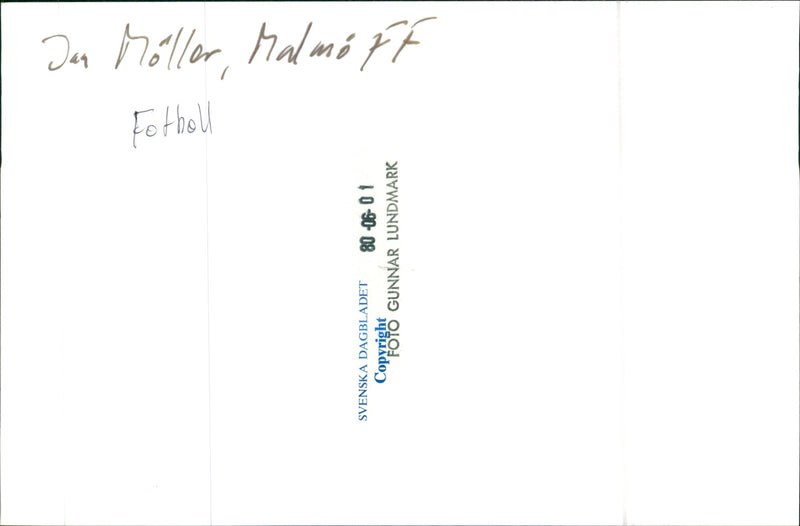 Jan Möller, Malmö FF
Fotboll
SVENSKA DAGBLADET
80-06-01
Copyright
FOTO GUNNAR LUNDMARK